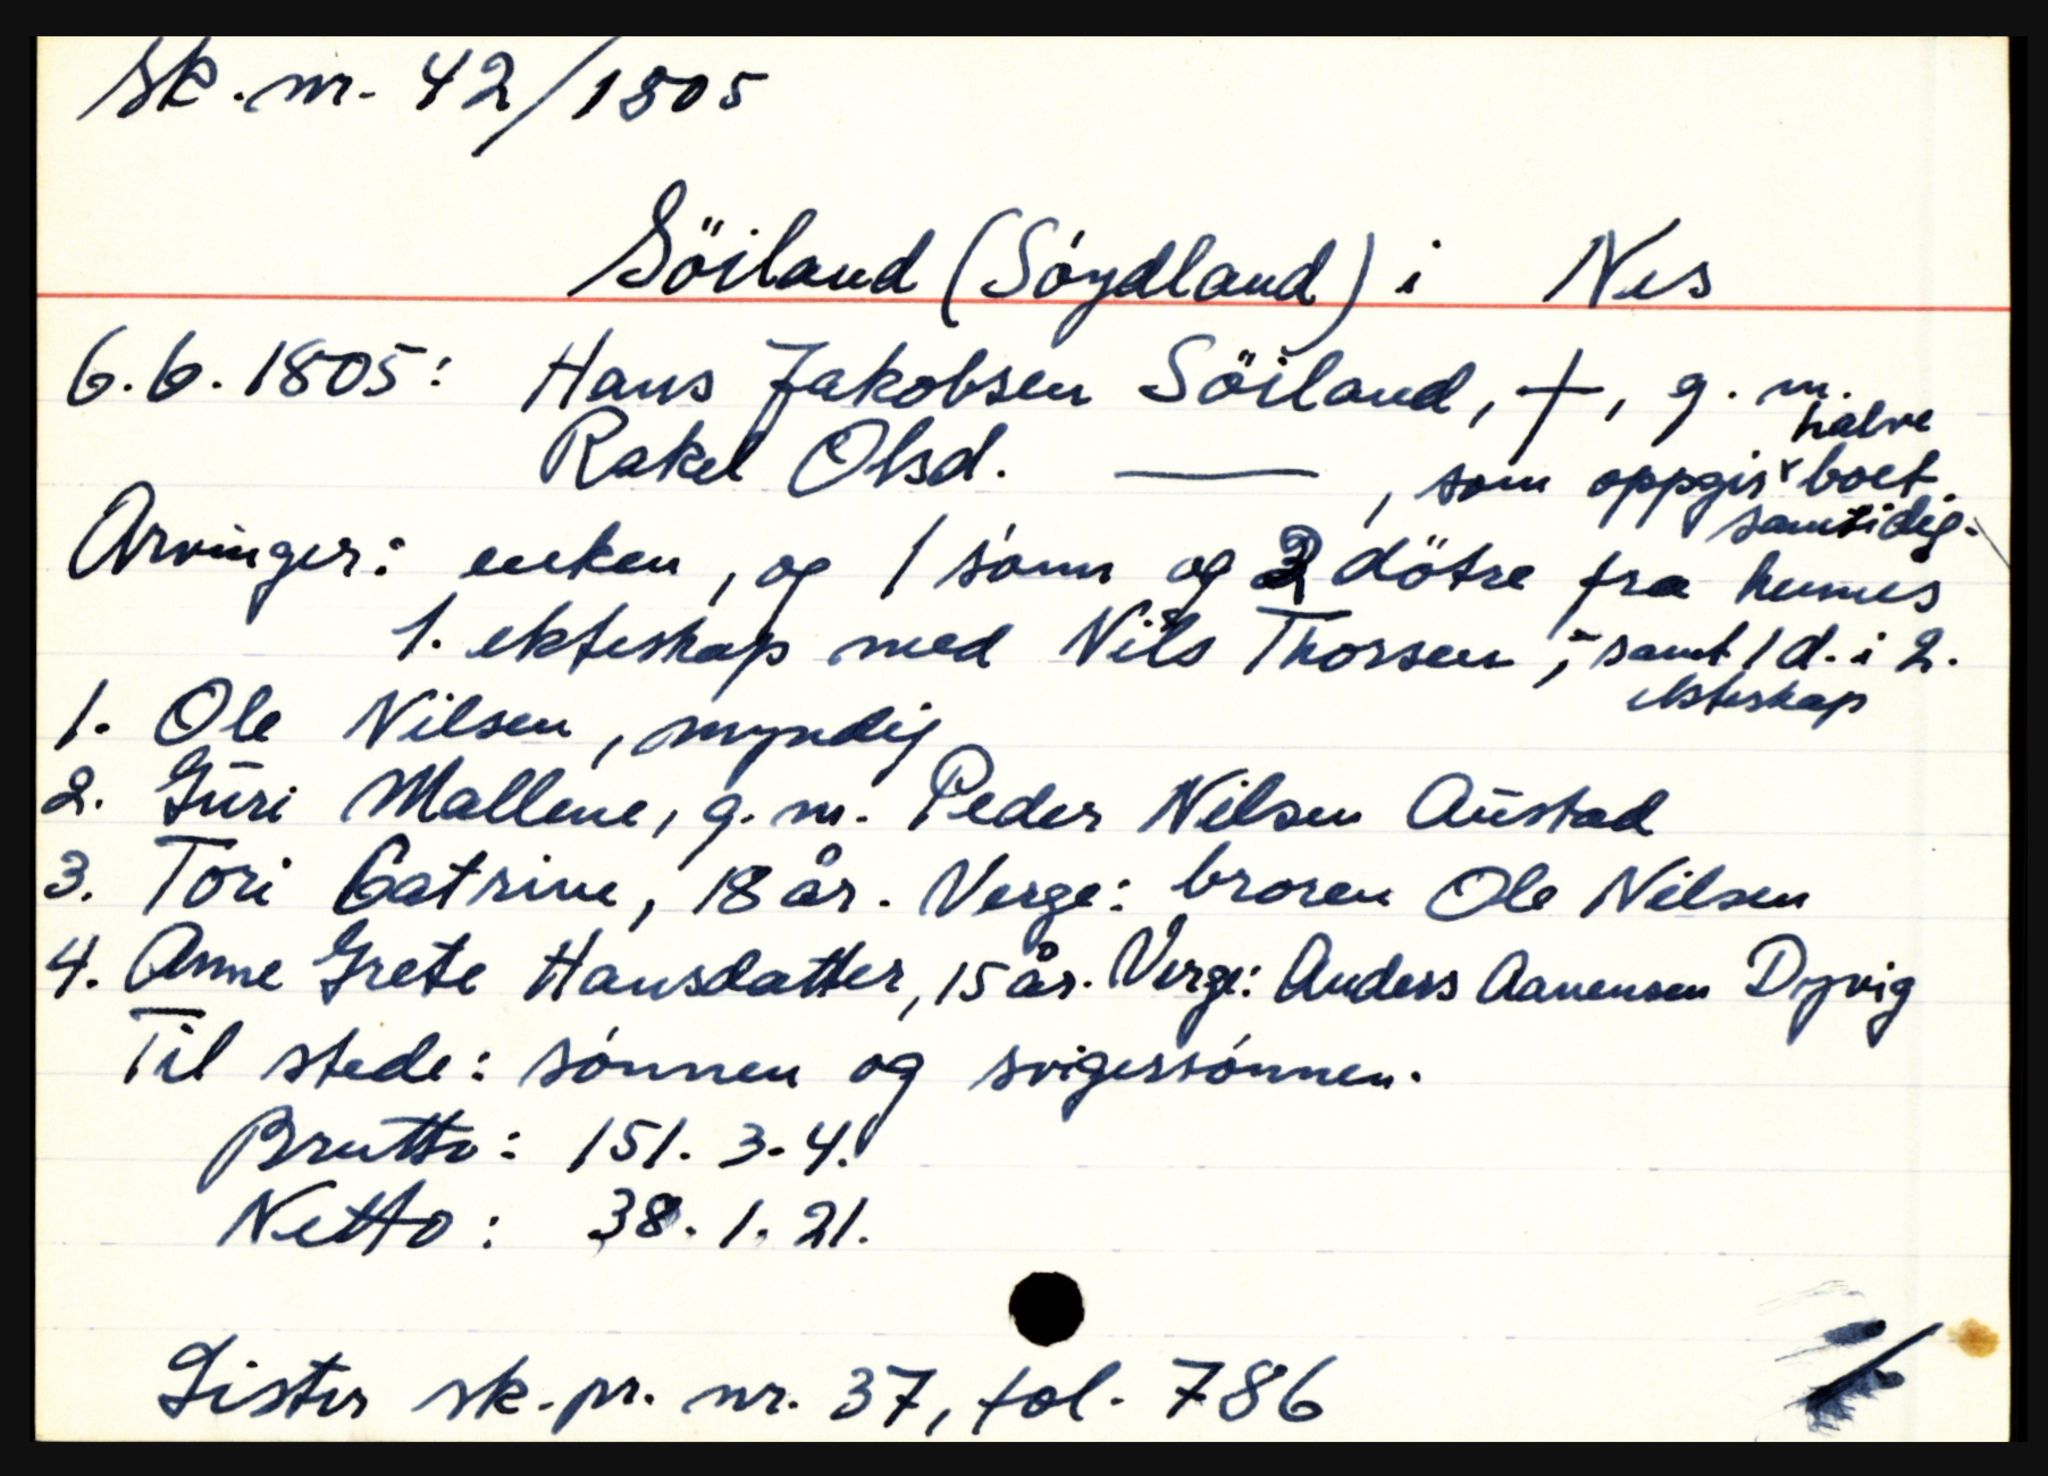 Sk. nr. 42/1805
Söiland (Söydland) i Nes
6.6.1805: Hans Jakobsen Söiland, +, g. m.
Rakel Olsd. —— , som oppgir halve boet samtidig.
Arvinger: enken, og 1 sönn og 2 dötre fra hennes
1. ekteskap med Nils Thorsen, samt 1 d. i 2. ekteskap
1. Ole Nilsen, myndig
2. Guri Mallene, g. m. Peder Nilsen Austad
3. Tori Catrine, 18 år. Verge: broren Ole Nilsen
4. Anne Grete Hansdatter, 15 år. Verge: Anders Aanensen Dyvig
Til stede: sönnen og svigersönnen.
Brutto: 151. 3. 4.
Netto: 38. 1. 21.
Lister sk. pr. nr. 37, fol. 786